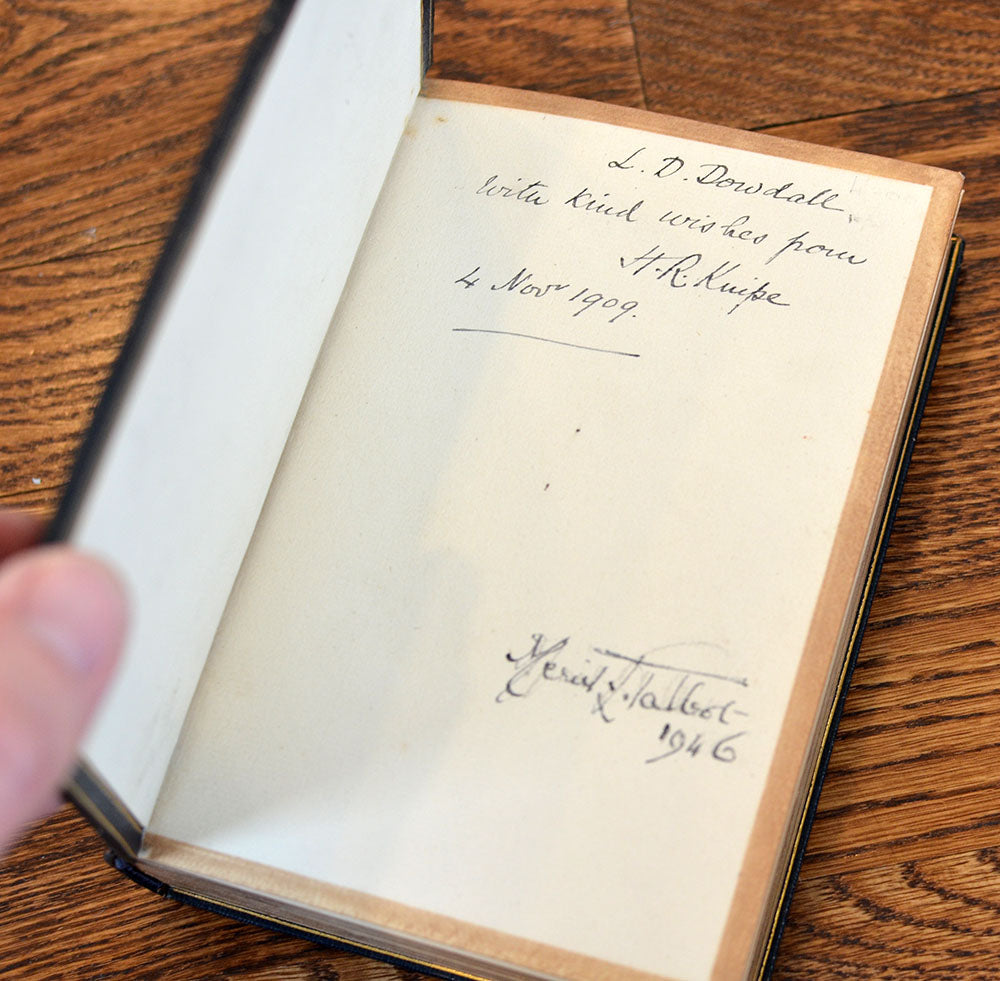 L. D. Dowdall,
With kind wishes from
H. R. Knipe
4 Novr 1909.
Talbot
1946